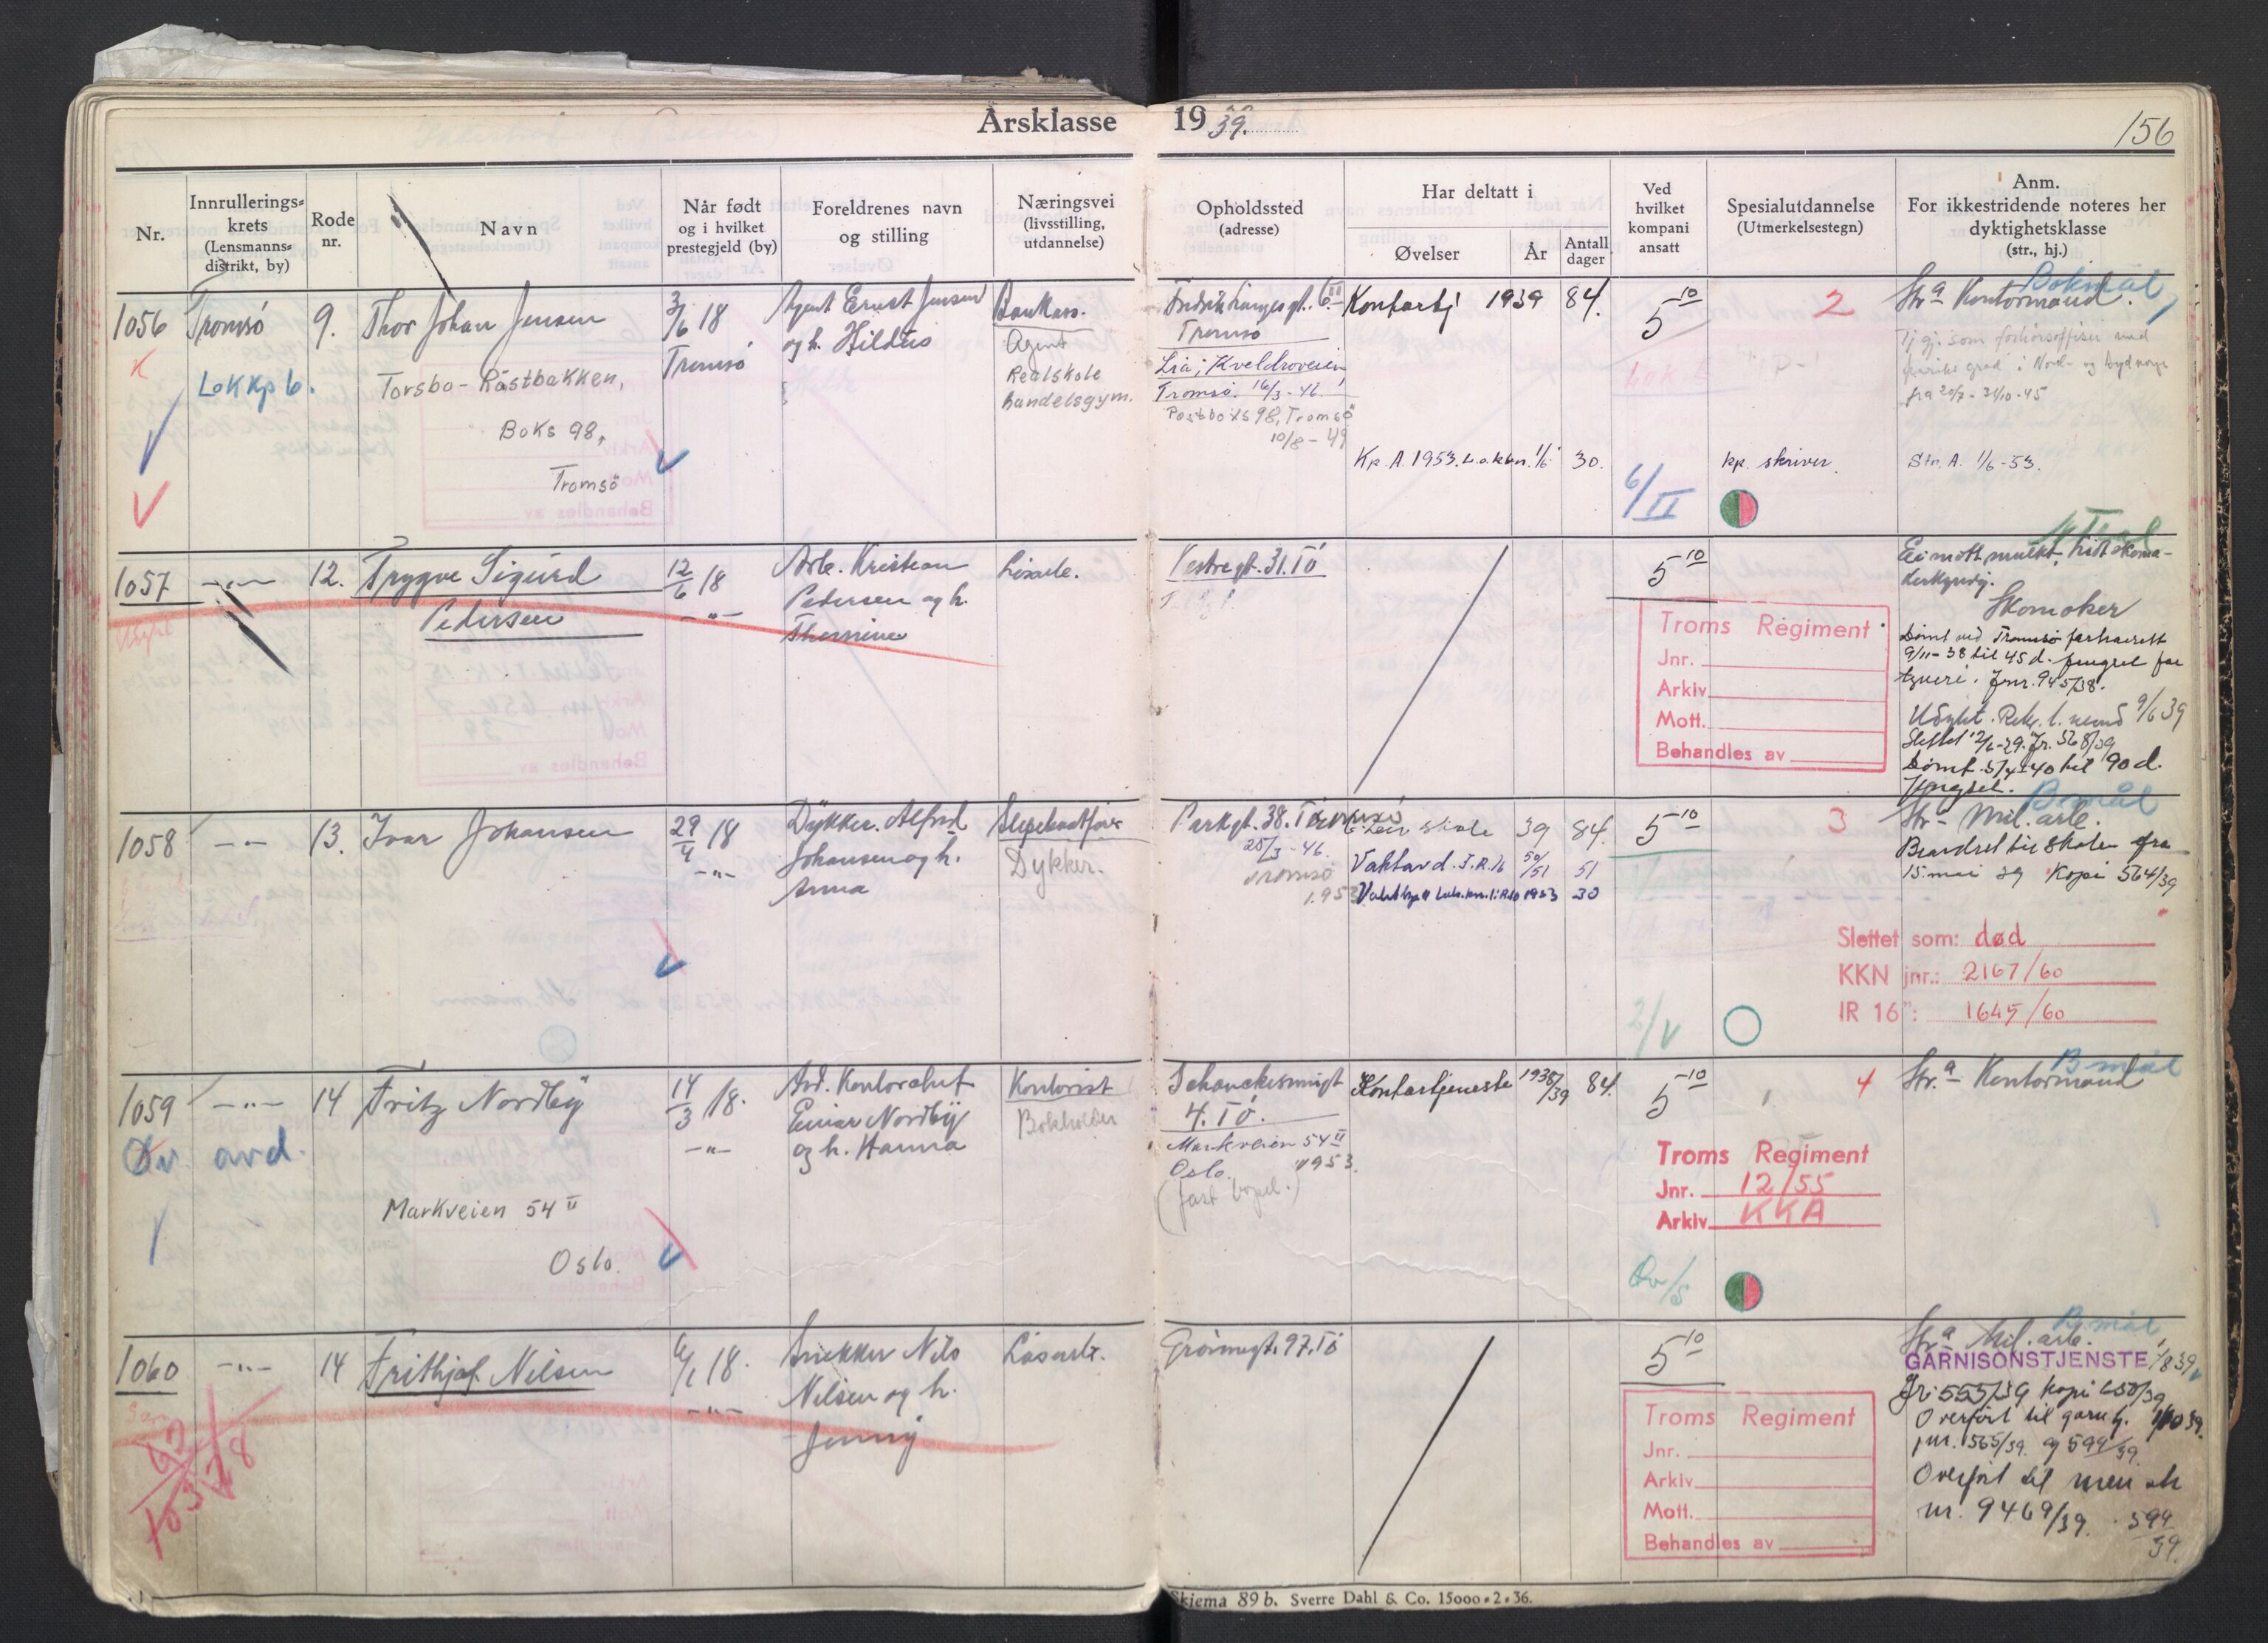 Årsklasse 1939.
156
Nr.
Innrullerings-
krets
(Lensmanns-
distrikt, by)
Rode
nr.
Navn
Når født
og i hvilket
prestegjeld (by)
Foreldrenes navn
og stilling
Næringsvei
(livsstilling,
utdannelse)
Opholdssted
(adresse)
Har deltatt i
Øvelser
År
Antall
dager
Ved
hvilket
kompani
ansatt
Spesialutdannelse
(Utmerkelsestegn)
Anm.
For ikkestridende noteres her
dyktighetsklasse
(str., hj.)
1056 Tromsö 9. Thor Johan Jensen
3/6 18
Tromsö
Agent Ernst Jensen
og h. Hildus
Bankass.
Agent
Realskole
Handelsgym.
Lok Kp 6.
Torsbo - Råstbakken,
Boks 98,
Tromsö
Tromsö
Lia, Kveldroveien
Tromsö. 16/3-46.
Postboks 98, Tromsö
10/8-49
Kontortj 1939 84.
Kp. A. 1953. 1/6 30.
5 10
6/II
2
kp. skriver.
Bokmål
Str. a Kontormand.
Tj. gj. som forhörsoffiser med
fenriks grad i Nord- og Sydnorge
fra 20/7 - 31/10-45
Str. A. 1/6-53.
1057 -"- 12. Trygve Sigurd
Pedersen
12/6 18
-"-
Arb. Kristian
Pedersen og h.
Lösarb.
Vestregt. 31. Tö
5 10
Troms Regiment
Jnr.
Arkiv
Mott.
Behandles av
Skomaker
Dömt ved Tromsö forhörsrett
9/11-38 til 45 d. fengsel for
tyveri. Jnr. 945/38.
9/6 39
Jr. 568/39
Dömt 5/4-40 til 90 d.
fengsel.
1058 -"- 13. Ivar Johansen
29/4 18
-"-
Dykker Alfred
Johansen og h.
Anna
Dykker.
Parkgt. 38. Tromsö
25/3-46.
Tromsö
1953
skole 39 84.
Vaktavd. I.R. 16 50/51 51
1953 30
5 10
2/V
3
Bmål
Str. Mil. arb.
Beordret til skolen fra
15. mai 39 Kopi 564/39
Slettet som: død
KKN jnr.: 2167/60
IR 16 ": 1645/60
1059 -"- 14 Fritz Nordby
14/3 18.
-"-
Einar Nordby
og h. Hanna
Kontorist
Bokholder
Øv. avd.
Markveien 54 II
Oslo.
4. Tö.
Markveien 54 II
Oslo. 1953.
(fast bopel.)
Kontortjeneste 1938/39 84.
5 10
Øv/5
4
Bmål
Str. a Kontormand
Troms Regiment
Jnr. 12/55
Arkiv KKA
1060 -"- 14 Frithjof Nilsen
6/1 18.
-"-
Snekker Nils
Nilsen og h.
Jenny
Lösarb.
Grönnegt. 97. Tö
5 10
Troms Regiment
Jnr.
Arkiv
Mott.
Behandles av
Bmål
Str. a Mil. arb.
GARNISONSTJENSTE 1/8 39
Jr. 555/39 kopi 650/39
Overfört til garn tj. 1/10 39.
jnr. 565/39. og 594/39.
Overfört til
nr. 9469/39. 594/39.
Skjema 89 b. Sverre Dahl & Co. 15000-2-36.